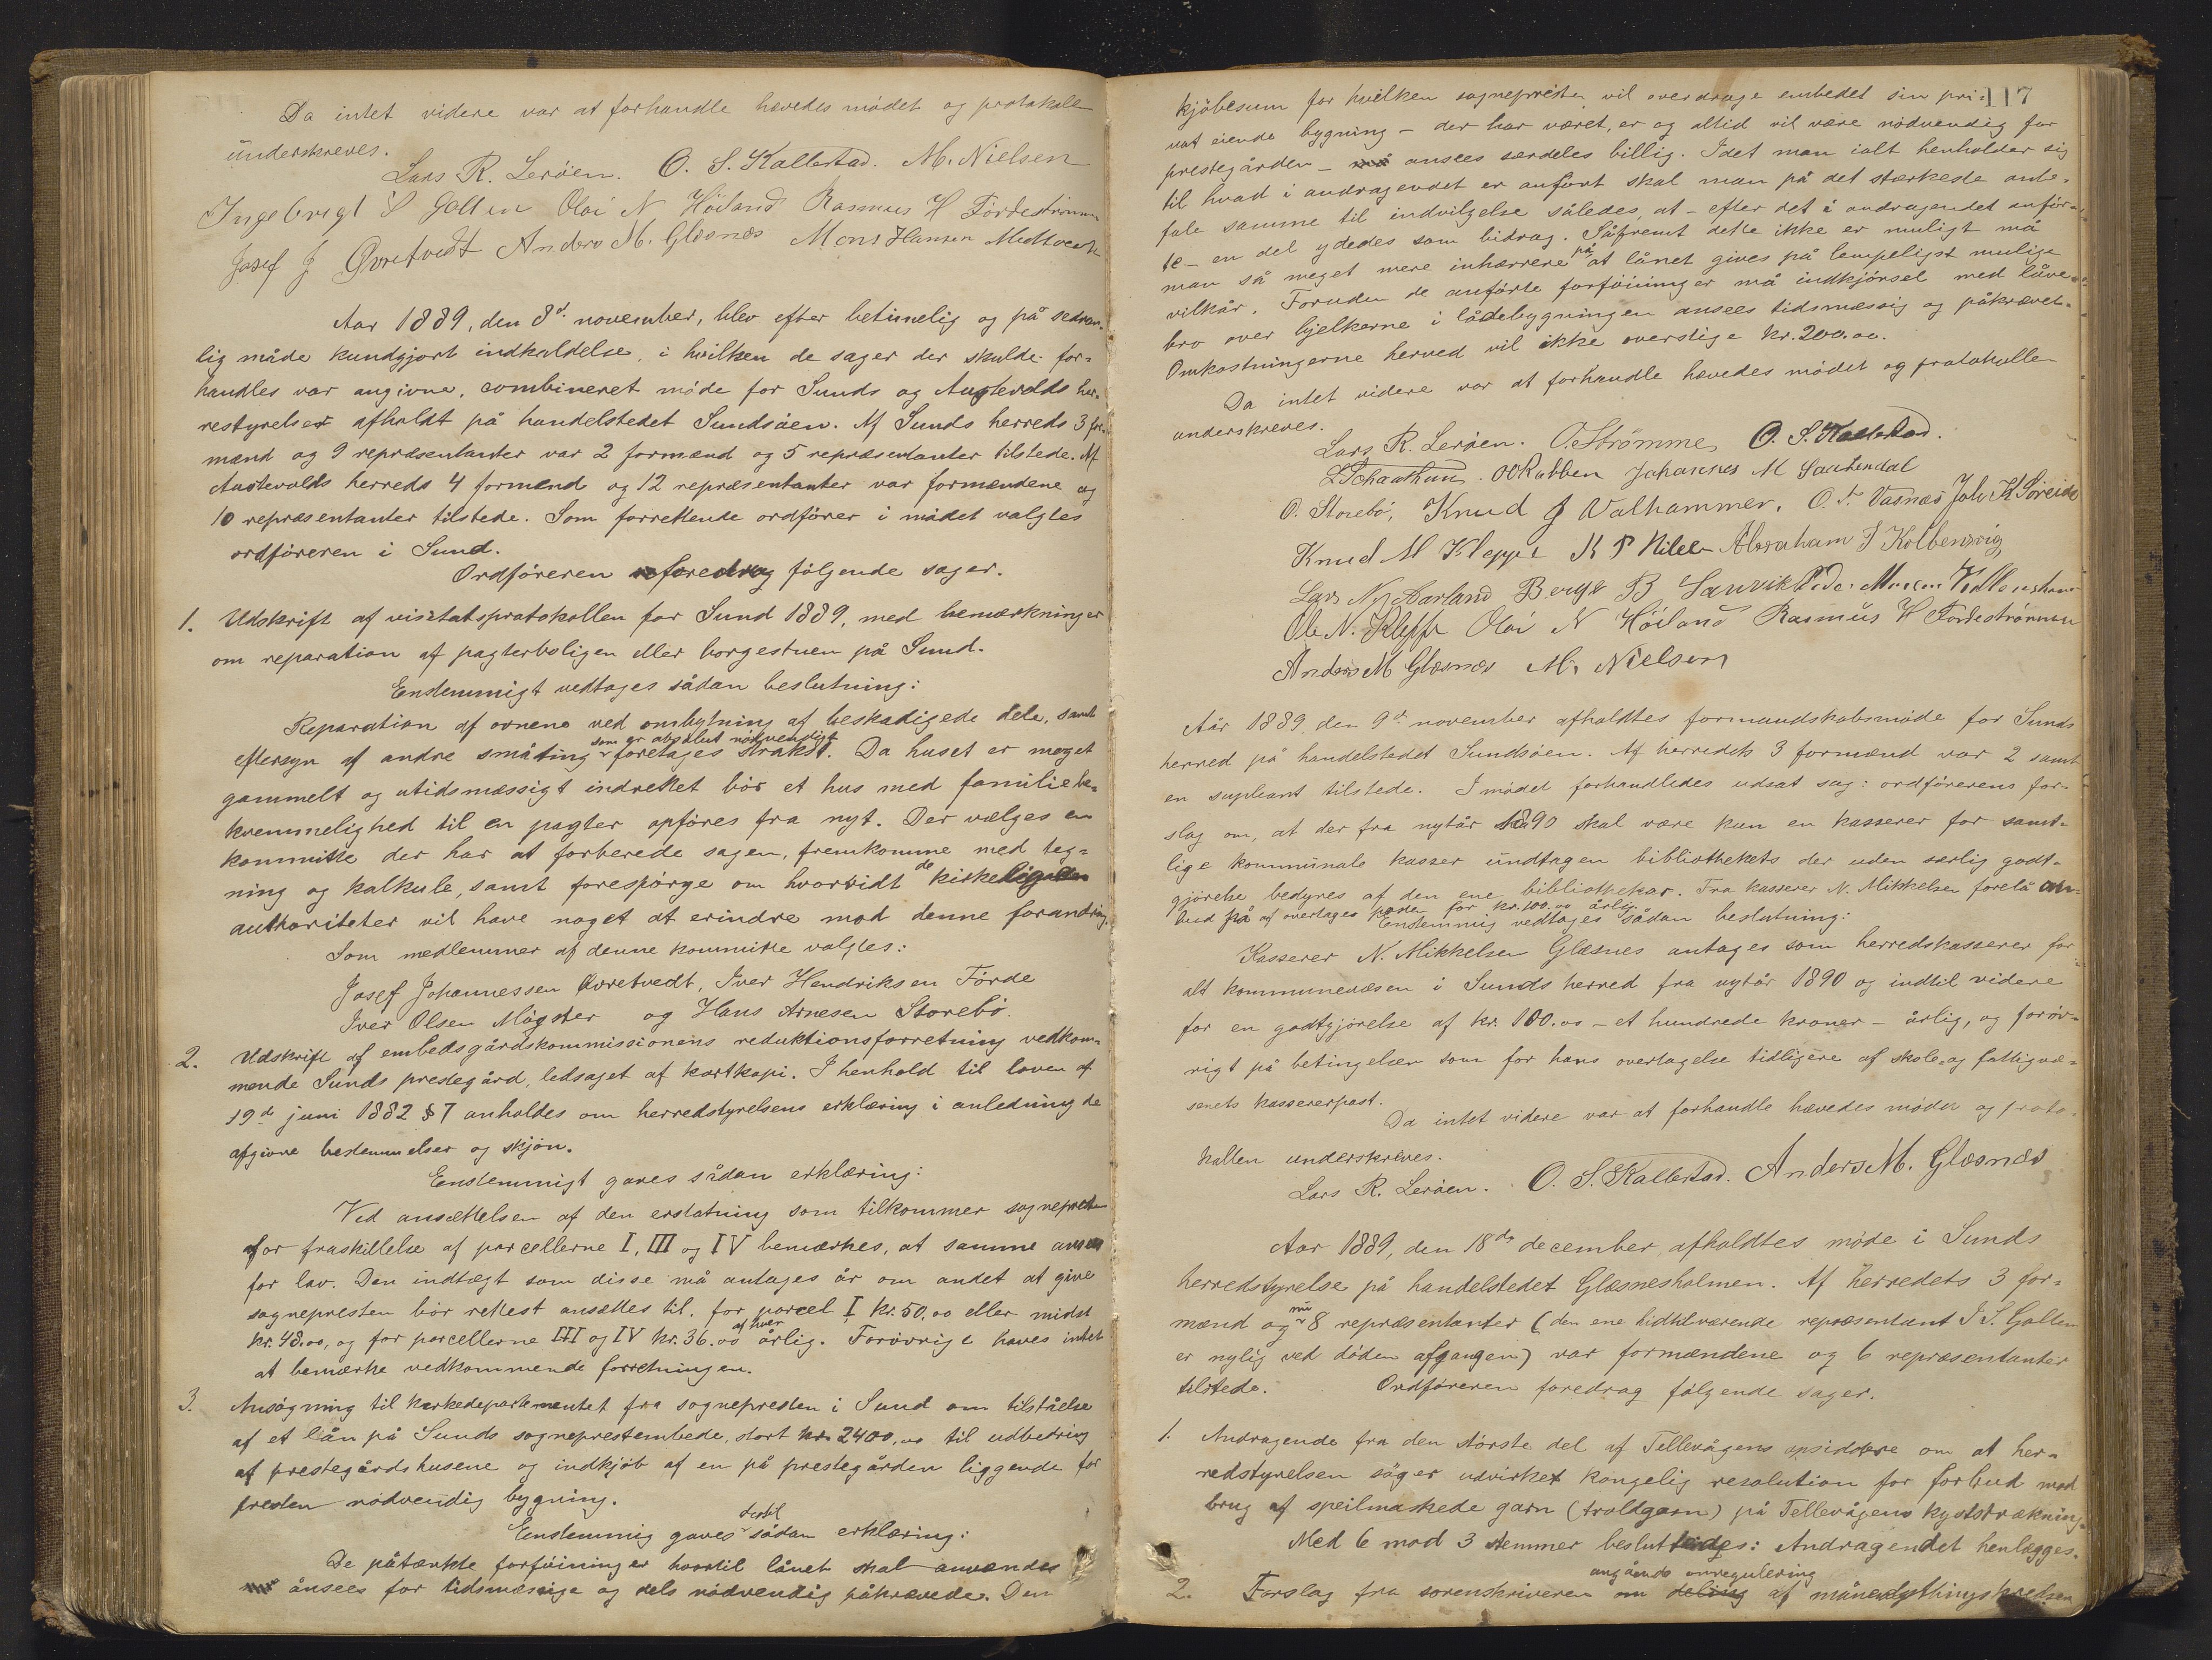 Da intet videre var at forhandle hævedes mødet og protokolle
underskreves.
Lars R. Leröen. O. S. Kallestad. M. Nielsen
Ingebrigt S Golten Olai N Höiland Rasmus H Fördestrømmen
Josef J Øvretvedt Anders M. Glæsnæs Mons Hansen Midttveit
Aar 1889, den 8d november, blev efter betimelig og på sedvan-
lig måde kundgjort indkaldelse, i hvilken de sager der skulde for=
handles var angivne, combineret møde for Sunds og Austevolds her-
restyrelser afholdt på handelstedet Sundsöen. Af Sunds herreds 3 for-
mænd og 9 repræsentanter var 2 formænd og 5 repræsentanter tilstede. Af
Austevolds herreds 4 formænd og 12 repræsentanter var formændene og
10 repræsentanter tilstede. Som forrettende ordfører i mødet valgtes
ordføreren i Sund.
Ordføreren foredrog følgende sager.
1. Udskrift af visitatsprotokollen for Sund 1889, med bemærkninger
om reparation af pagterboligen eller borgestuen på Sund.
Enstemmigt vedtages sådan beslutning:
Reparation af ovnene ved ombytning af beskadigede dele, samt
eftersyn af andre småting som er absolut nødvendigt foretages strakst. Da huset er meget
gammelt og utidsmæssigt indrettet bör et hus med familiebe-
kvemmelighed til en pagter opføres fra nyt. Der vælges en
kommitte der har at forberede sagen, fremkomme med teg=
ning og kalkule, samt forespørge om hvorvidt de kirkelige
authoriteter vil have noget at erindre mod denne forandring.
Som medlemmer af denne kommitte valgtes:
Josef Johannessen Øvretvedt, Iver Hendriksen Förde
Iver Olsen Møgster og Hans Arnesen Storebö.
2. Udskrift af embedsgårdskommissionens reduktionsforretning vedkom-
mende Sunds prestegård, ledsaget af kartkopi. I henhold til loven af
19de juni 1882 § 7 anholdes om herredstyrelsens erklæring i anledning de
afgivne bestemmelser og skjøn.
Enstemmigt gaves sådan erklæring:
Ved ansættelsen af den erstatning som tilkommer sognepresten
for fraskillelse af parcellerne I, III og IV bemærkes, at samme ansees
for lav. Den indtægt som disse må antages år om andet at give
sognepresten bör rettest ansættes til, for parcel I kr. 50,00 eller midst
kr. 48.00, og for parcellerne III og IV kr. 36.00 af hver årlig. Forøvrigt haves intet
at bemærke vedkommende forretningen.
3. Ansøgning til kirkedepartementet fra sognepresten i Sund om tilståelse
af et lån på Sunds sogneprestembede, stort kr. 2400,00 til udbedring
af prestegårdshusene og indkjøb af en på prestegården liggende for
presten nødvendig bygning.
Enstemmig gaves dertil sådan erklæring:
De påtænkte forföininger hvortil lånet skal anvendes
ånsees for tidsmæssige og dels nödvendig påkrævede. Den
117
kjöbesum for hvilken sognepresten vil overdrage embedet sin pri-
vat eiende bygning – der har været, er og altid vil være nödvendig for
prestegården – må ansees særdeles billig. Idet man ialt henholder sig
til hvad i andragendet er anført skal man på det stærkeste anbe-
fale samme til indvilgelse således, at – efter det i andragendet anför-
te – en del ydedes som bidrag. Såfremt dette ikke er muligt må
man så meget mere inhærrere på at lånet gives på lempeligst mulige
vilkår. Foruden de anförte forföininger må indkjörsel med låve-
bro over bjelkerne i lådebygningen ansees tidsmæssig og påkrævet.
Omkostningerne herved vil ikke overstige kr. 200.00.
Da intet videre var at forhandle hævedes mödet og protokollen
underskreves.
Lars R. Leröen. O. Strömme O. S. Kallestad.
L Schaathun. O Rabben Johannes M Sandtendal
O. Storebö, Knud J Valhammer, O. T. Vasnæs Jak K Söreide
Knud M Kleppe K P Nilsen Abraham J Kolbensvig
Lars N. Aarland Berge B Sanvik Peder
Ole N. Kleppe Olai N Höiland Rasmus H Fördeströmmen
Anders M Glæsnæs M. Nielsen
Aår 1889, den 9de november afholdtes formandskabsmöde for Sunds
herred på handelstedet Sundsöen. Af herredets 3 formænd var 2 samt
en supleant tilstede. I mödet forhandledes udsat sag: ordförerens for-
slag om, at der fra nytår 1890 skal være kun en kasserer for samt-
lige kommunale kasser undtagen bibliothekets der uden særlig godt-
gjörelse bestyres af den ene bibliothekar. Fra kasserer N. Mikkelsen forelå an-
bud på at overtages posten for kr. 100.00 årlig.
Enstemmig vedtages sådan beslutning:
Kasserer N. Mikkelsen Glæsnes antages som herredskasserer for
alt kommunevæsen i Sunds herred fra nytår 1890 og indtil videre
for en godtgjörelse af kr. 100.00 – et hundrede kroner – årlig, og foröv-
rigt på betingelsen som for hans overtagelse tidligere af skole- og fattigvæ-
senets kassererpost.
Da intet videre var at forhandle hævedes mödet og proto-
kollen underskreves.
Lars R. Leröen. O. S. Kallestad. Anders M. Glæsnæs
Aar 1889, den 18de december, afholdtes möde i Sunds
herredstyrelse på handelstedet Glæsnesholmen. Af herredets 3 for=
mænd og nu 8 repræsentanter (den ene hidtilværende repræsentant I S. Golten
er nylig ved döden afgangen) var formændene og 6 repræsentanter
tilstede. Ordföreren foredrag fölgende sager.
1. Andragende fra den störste del af Tellevågens opsiddere om at her-
redstyrelsen söger udvirket kongelig resolution for forbud mod
brug af speilmaskede garn (troldgarn) på Tellevågens kyststrækning.
Med 6 mod 3 stemmer besluttedes: Andragendet henlægges.
2. Forslag fra sorenskriveren om deling angående omregulering af månedsthingskredsen